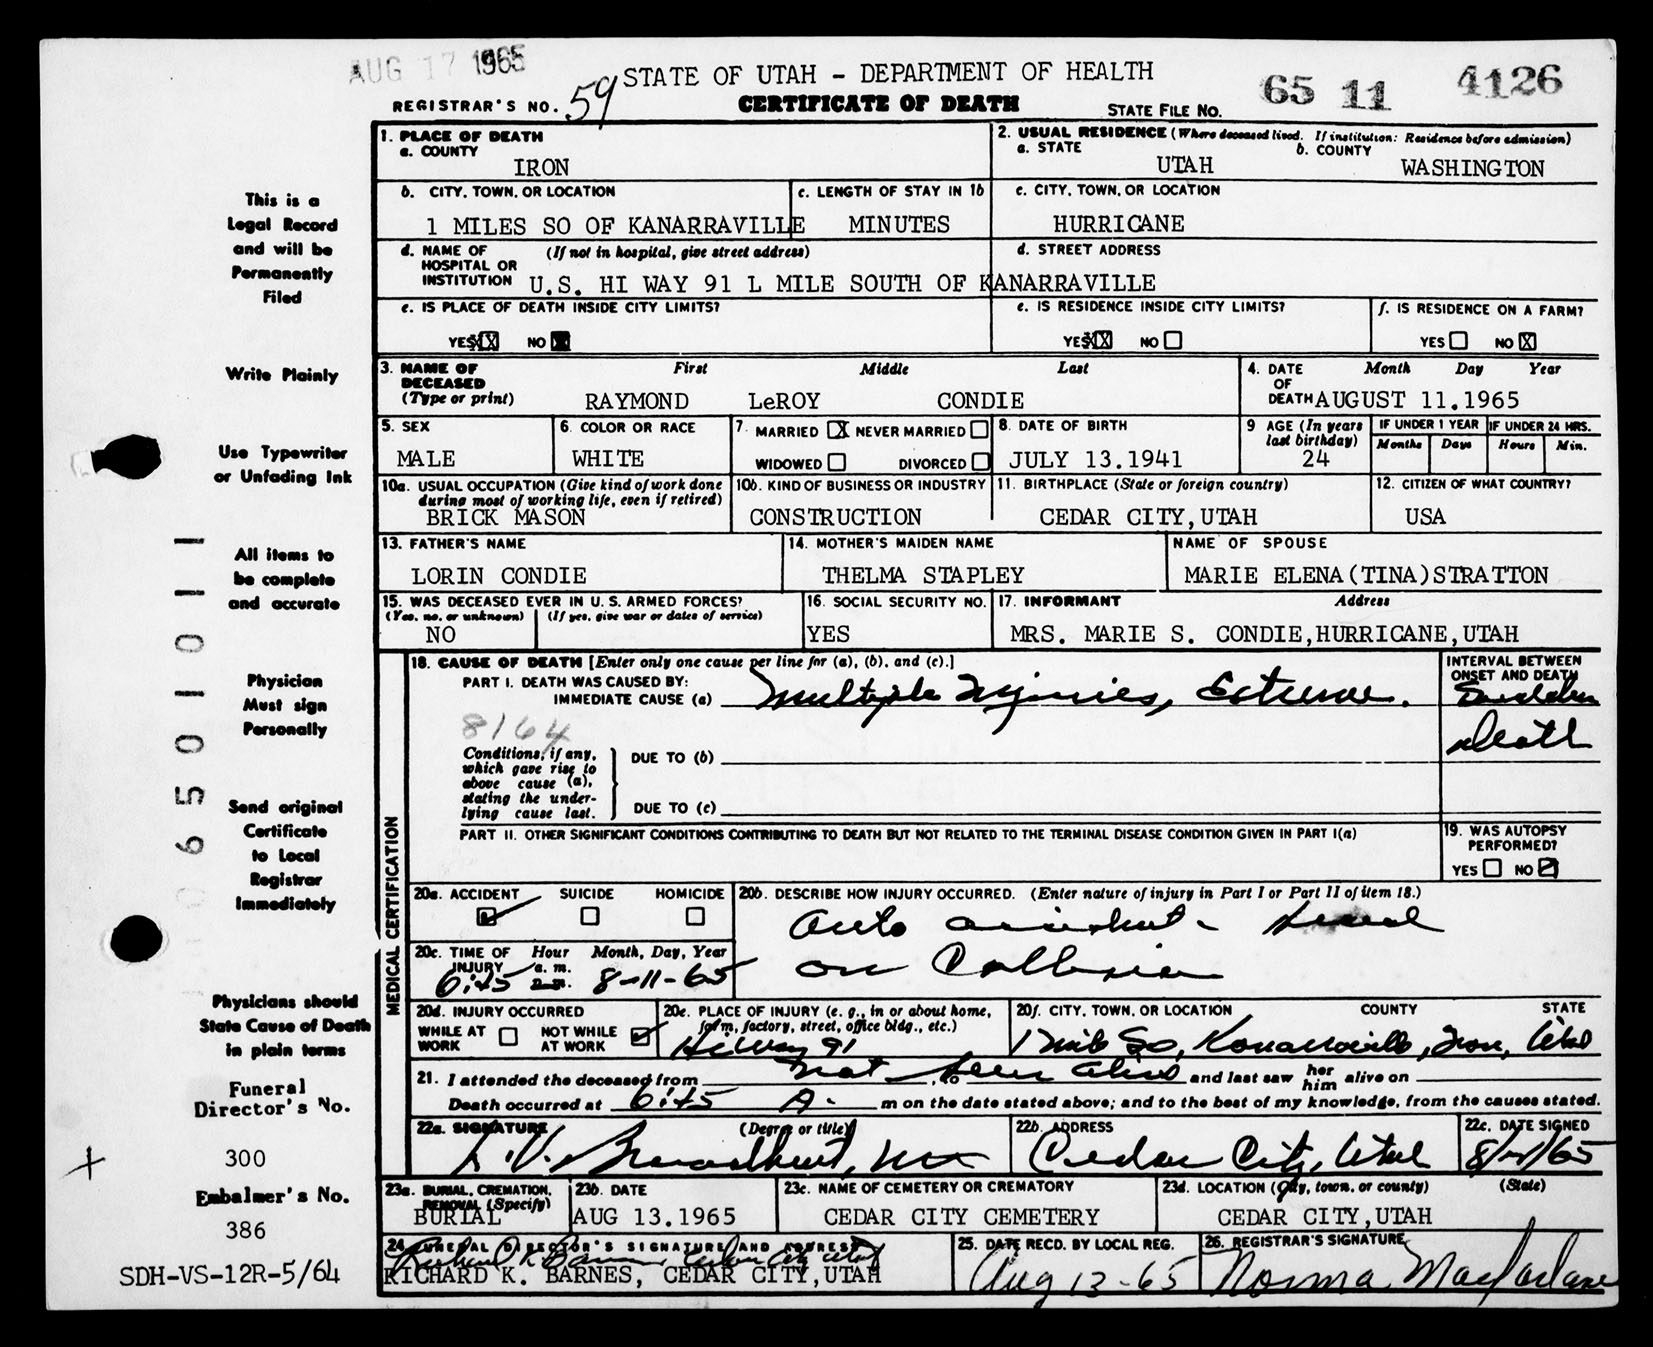 AUG 17 1965
STATE OF UTAH - DEPARTMENT OF HEALTH
65 11 4126
REGISTRAR'S NO. 59
CERTIFICATE OF DEATH
STATE FILE NO.
This is a
Legal Record
and will be
Permanently
Filed
Write Plainly
Use Typewriter
or Unfading Ink
All items to
be complete
and accurate
Physician
Must sign
Personally
Send original
Certificate
to Local
Registrar
Immediately
Physicians should
State Cause of Death
in plain terms
Funeral
Director's No.
300
Embalmer's No.
386
SDH-VS-12R-5/64
06501011
1. PLACE OF DEATH
a. COUNTY
IRON
2. USUAL RESIDENCE (Where deceased lived. If institution: Residence before admission)
a. STATE
UTAH
b. COUNTY
WASHINGTON
b. CITY, TOWN, OR LOCATION
1 MILES SO OF KANARRAVILLE
c. LENGTH OF STAY IN 1b
MINUTES
c. CITY, TOWN, OR LOCATION
HURRICANE
d. NAME OF (If not in hospital, give street address)
HOSPITAL OR
INSTITUTION U.S. HI WAY 91 L MILE SOUTH OF KANARRAVILLE
d. STREET ADDRESS
e. IS PLACE OF DEATH INSIDE CITY LIMITS?
YES X NO
e. IS RESIDENCE INSIDE CITY LIMITS?
YES X NO
f. IS RESIDENCE ON A FARM?
YES NO X
3. NAME OF First Middle Last
DECEASED
(Type or print) RAYMOND LeROY CONDIE
4. DATE Month Day Year
OF
DEATH AUGUST 11.1965
5. SEX
MALE
6. COLOR OR RACE
WHITE
7. MARRIED X NEVER MARRIED
WIDOWED DIVORCED
8. DATE OF BIRTH
JULY 13.1941
9 AGE (In years
last birthday)
24
IF UNDER 1 YEAR
Months Days
IF UNDER 24 HRS.
Hours Min.
10a. USUAL OCCUPATION (Give kind of work done
during most of working life, even if retired)
BRICK MASON
10b. KIND OF BUSINESS OR INDUSTRY
CONSTRUCTION
11. BIRTHPLACE (State or foreign country)
CEDAR CITY,UTAH
12. CITIZEN OF WHAT COUNTRY?
USA
13. FATHER'S NAME
LORIN CONDIE
14. MOTHER'S MAIDEN NAME
THELMA STAPLEY
NAME OF SPOUSE
MARIE ELENA(TINA)STRATTON
15. WAS DECEASED EVER IN U.S. ARMED FORCES?
(Yes, no, or unknown) (If yes, give war or dates of service)
NO
16. SOCIAL SECURITY NO.
YES
17. INFORMANT Address
MRS. MARIE S. CONDIE,HURRICANE,UTAH
MEDICAL CERTIFICATION
18. CAUSE OF DEATH [Enter only one cause per line for (a), (b), and (c).]
PART I. DEATH WAS CAUSED BY:
IMMEDIATE CAUSE (a) Multiple Injuries, Extreme.
INTERVAL BETWEEN
ONSET AND DEATH
Sudden
Death
8164
Conditions, if any,
which gave rise to
above cause (a),
stating the under-
lying cause last.
DUE TO (b)
DUE TO (c)
PART II. OTHER SIGNIFICANT CONDITIONS CONTRIBUTING TO DEATH BUT NOT RELATED TO THE TERMINAL DISEASE CONDITION GIVEN IN PART I(a)
19. WAS AUTOPSY
PERFORMED?
YES NO
20a. ACCIDENT SUICIDE HOMICIDE
20b. DESCRIBE HOW INJURY OCCURRED. (Enter nature of injury in Part I or Part II of item 18.)
Auto accident - Head
on Collision
20c. TIME OF Hour Month, Day, Year
INJURY a. m.
6:45 p.m. 8-11-65
20d. INJURY OCCURRED
WHILE AT WORK NOT WHILE AT WORK
20e. PLACE OF INJURY (e. g., in or about home,
farm, factory, street, office bldg., etc.)
HiWay 91
20f. CITY, TOWN, OR LOCATION COUNTY STATE
1 mile So, Kanarraville, Iron, Utah
21. I attended the deceased from Not seen alive, to and last saw her him alive on
Death occurred at 6:45 A. m on the date stated above; and to the best of my knowledge, from the causes stated.
22a. SIGNATURE (Degree or title)
L. V. Broadbent, MD
22b. ADDRESS
Cedar City, Utah
22c. DATE SIGNED
23a. BURIAL, CREMATION,
REMOVAL (Specify)
BURIAL
23b. DATE
AUG 13.1965
23c. NAME OF CEMETERY OR CREMATORY
CEDAR CITY CEMETERY
23d. LOCATION (City, town, or county) (State)
CEDAR CITY,UTAH
24. FUNERAL DIRECTOR'S SIGNATURE AND ADDRESS
Richard K. Barnes Cedar City Utah
RICHARD K. BARNES, CEDAR CITY,UTAH
25. DATE RECD. BY LOCAL REG.
Aug 12-65
26. REGISTRAR'S SIGNATURE
Norma Macfarlane